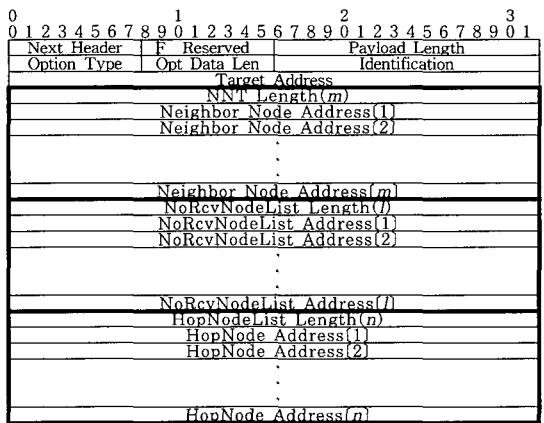 0 1 2 3
0 1 2 3 4 5 6 7 8 9 0 1 2 3 4 5 6 7 8 9 0 1 2 3 4 5 6 7 8 9 0 1
Next Header F Reserved Payload Length
Option Type Opt Data Len Identification
Target Address
NNT Length(m)
Neighbor Node Address[1]
Neighbor Node Address[2]
.
.
.
Neighbor Node Address[m]
NoRcvNodeList Length(l)
NoRcvNodeList Address[1]
NoRcvNodeList Address[2]
.
.
.
NoRcvNodeList Address[l]
HopNodeList Length(n)
HopNode Address[1]
HopNode Address[2]
.
.
.
HopNode Address[n]